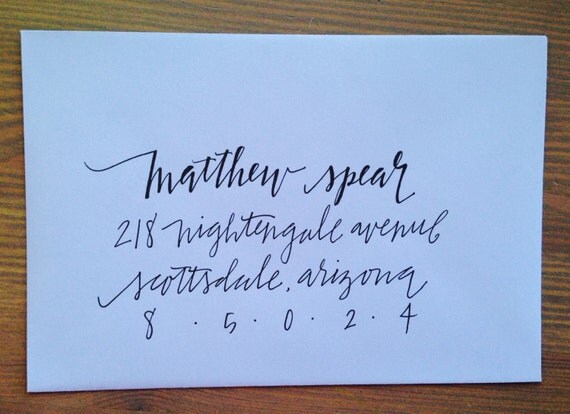 matthew spear
218 nightengale avenue
scottsdale, arizona
8 · 5 · 0 · 2 · 4